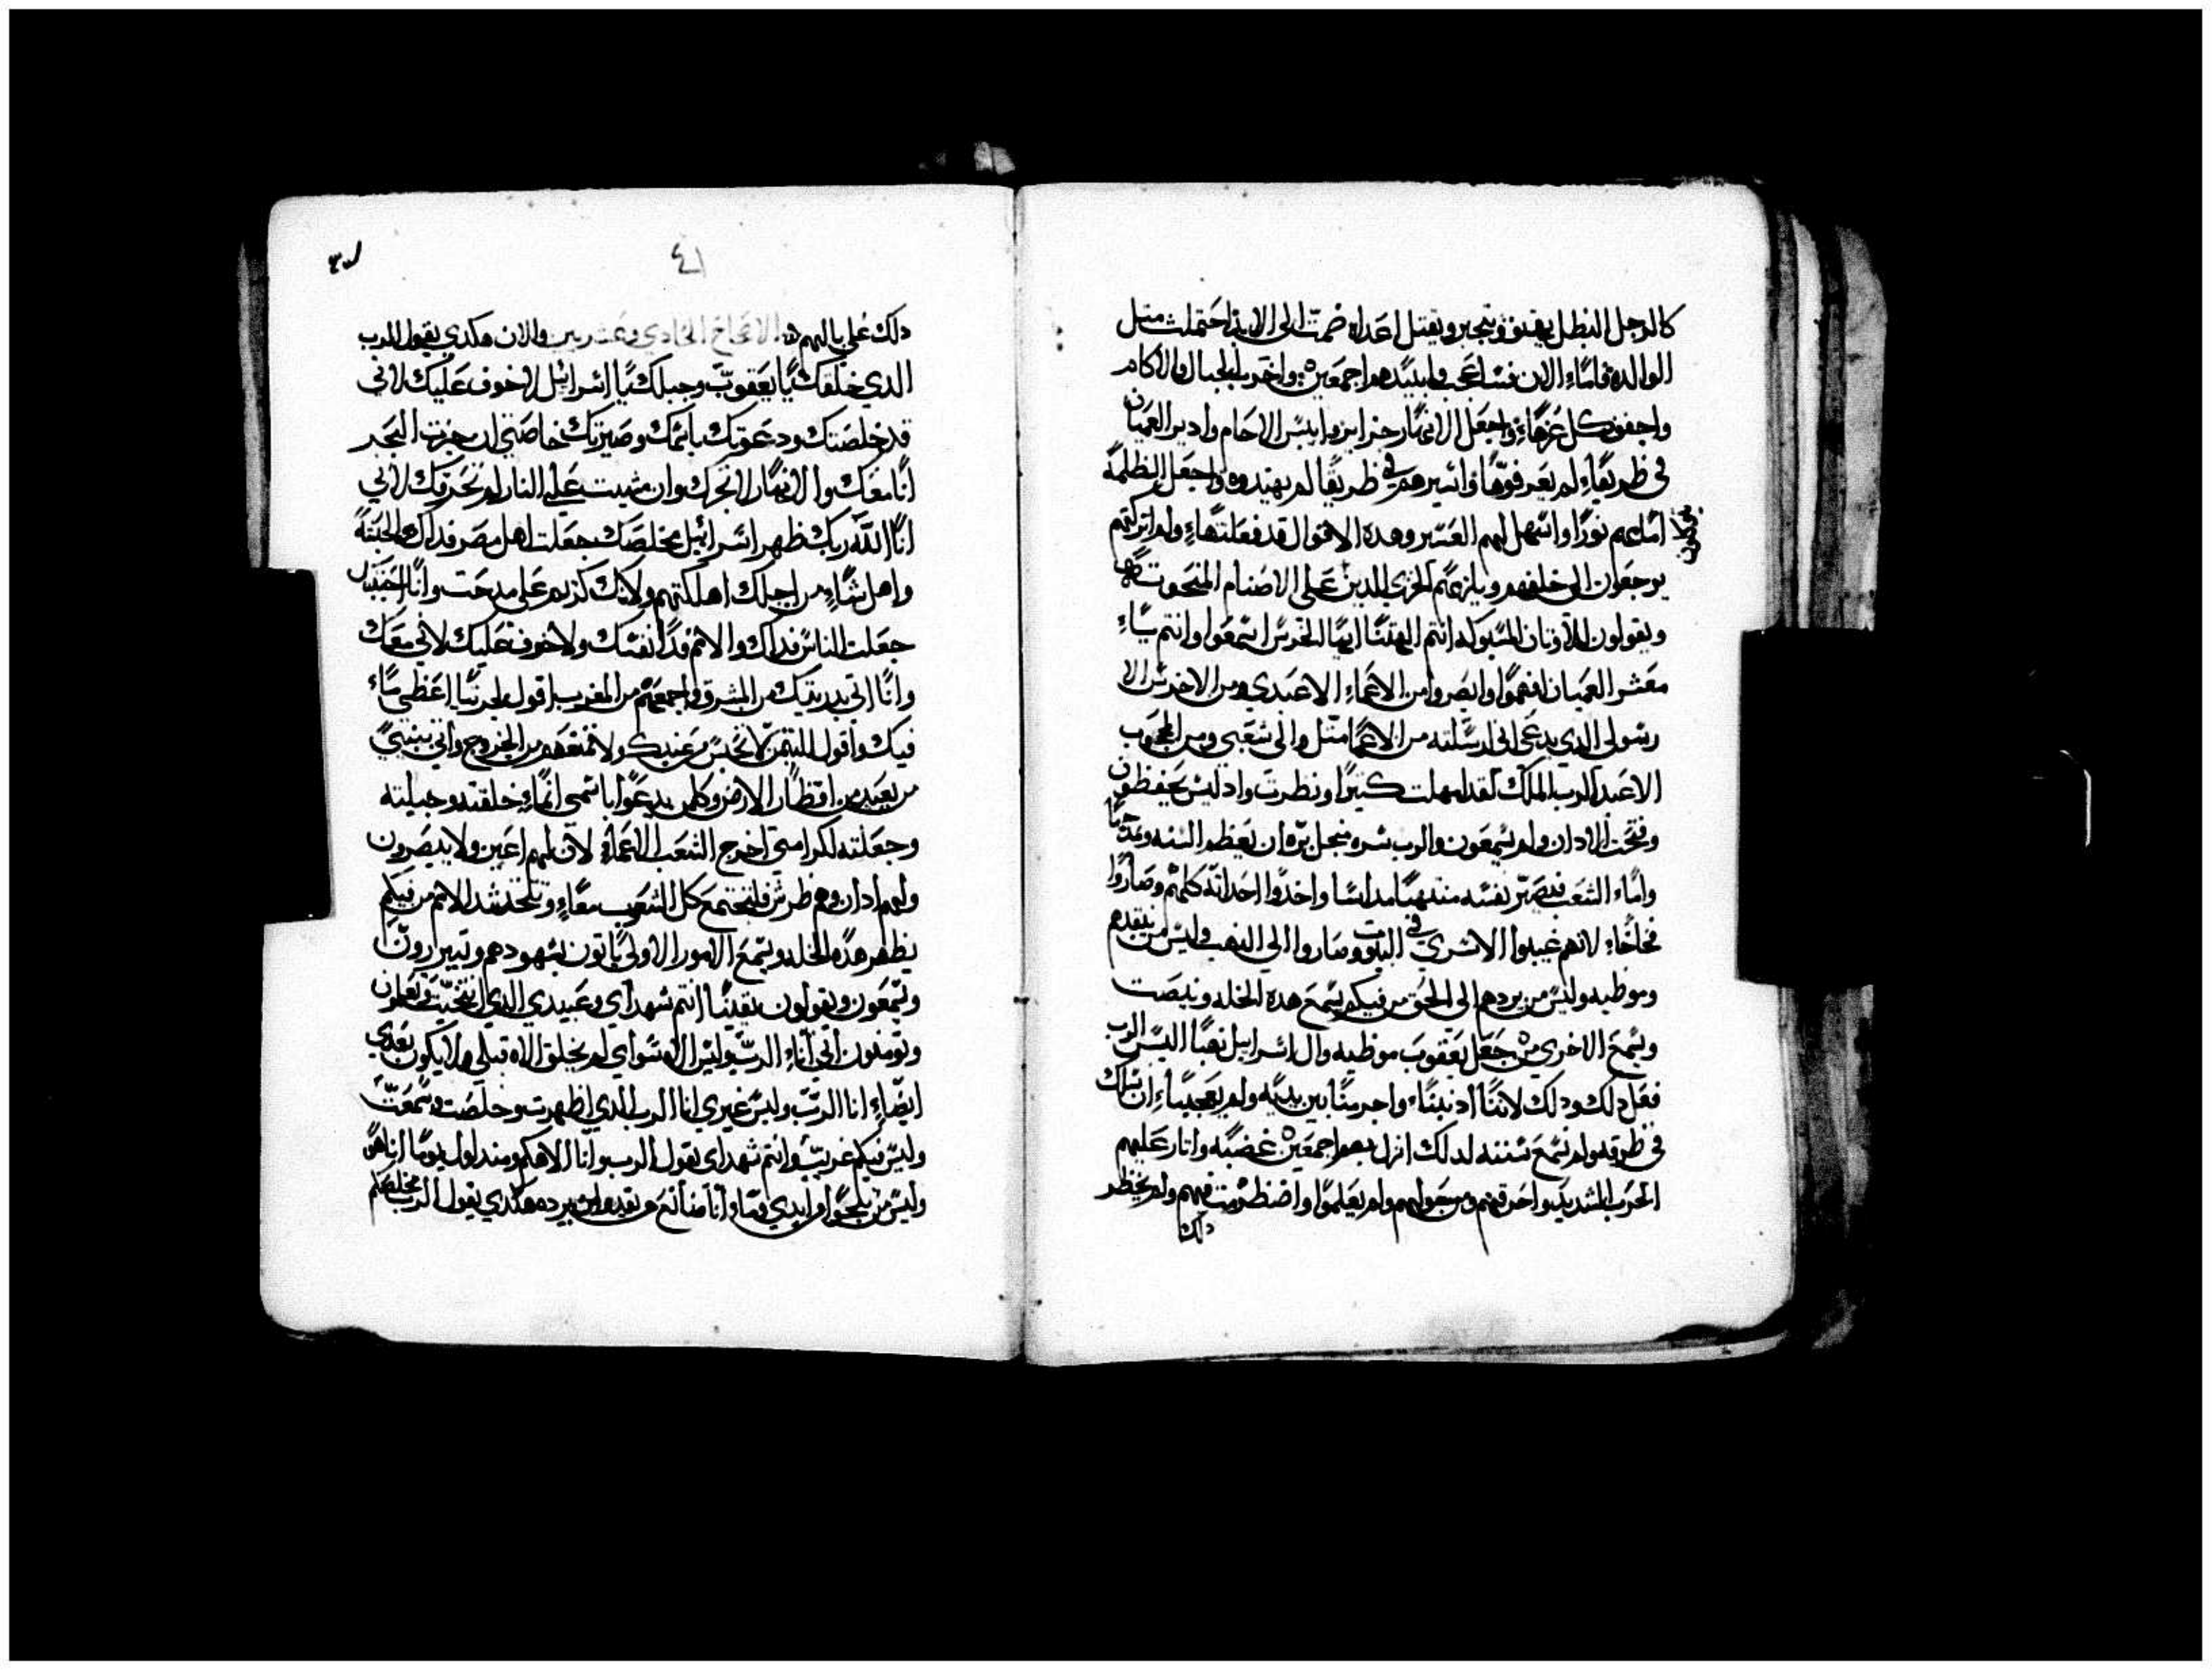 كالرجل البطل يقوي ويتجبر ويقتل اعداه صمت الى الابد احتملت مثل
الوالده فاماء الان فساعجب وابيدهم اجمعين واخرب الجبال والاكام
واجفف كل عزهاء واجعل الانهار جزاير وايبس الاجام وادبر العميان
في طريقاء لم يعرفوها واسيرهم في طريقا لم يهتدوه واجعل الظلمه
امامهم نورا واسهل لهم العسر وهده الاقوال قد فعلتهاء ولم اتركهم
يرجعون الى خلفهم ويلزمهم الخزي الدين على الاصنام المنحوته
ويقولون للاوتان المسبوكه انتم الهتنا ايها الخرس اسمعوا وانتم ياء
معشر العميان افهموا وابصروا من الاعماء الا عبدي ومن الاخرس الا
رسولي الدي يدعى اني ارسلته من الاعما متل والي شعبي ومن المحبوب
الا عبد الرب الملك لقد امهلت كتيرا ونظرت واد ليس يحفظون
وفتحت الادان ولم يسمعون والرب سره من اجل بره ان يعظم السنه
واماء الشعب فصير نفسه منتهبا مداسا واخدوا احداته كلهم وصاروا
فخاخاء لانهم غيبوا الاسري في البيوت وصاروا الي النهب وليس من ينقدهم
وموطيه وليس من يردهم الي الحق من فيكم يسمع هده الخله وينصت
ويسمع الاخري من جعل يعقوب موطيه وال اسرابيل نهبا اليس الرب
فعل دلك ودلك لاننا ادنبناء واجرمنا بين يديه ولم يعجبناء ان نسلك
في طرقه ولم نسمع سننه لدلك انزل بهم اجمعين غضبه واتار عليهم
الحرب الشديد واحرقهم من حولهم ولم يعلموا واضطرمت فيهم ولم يخطر
دلك
٤١
دلك علي بالهم الاصحاح الحادي وعشريين والان هكدي يقول الرب
الدي خلقك يا يعقوب وجبلك يا اسرائيل لا خوف عليك لاني
قد خلصتك ودعوتك باسمك وصيرتك خاصتي ان جزت البحر
انا معك والانهار لا تغرك وان مشيت علي النار لم تحرقك لاني
انا الله ربك ظهر اسرائيل مخلصك جعلت اهل مصر فداك والحبشه
واهل شباء من اجلك اهلكتهم ولانك كريم علي مدحت وانا احببتك
جعلت الناس فداك والامم فدا نفسك ولا خوف عليك لاني معك
وانا اتي بدريتك من المشرق واجمعهم من المغرب اقول للجربيا اعطي ماء
فيك واقول للتيمن لا تحبس من عندك ولا تمنعهم من الخروج واتي ببنيي
من بعيد من اقطار الارض وكلمن يدعوا باسمي انماء خلقته وجبلته
وجعلته لكرامتي اخرج الشعب الاعماء لان لهم اعين ولا يبصرون
ولهم ادان وهم طرش فليجتمع كل الشعوب معاء وتتحدث الامم من فيكم
يظهر هده الخله ويسمع الامور الاولي ياتون بشهودهم ويتبررون
ويسمعون ويقولون يقينا انتم شهداي وعبيدي الدي انتخبت تعلمون
وتومنون اني اناء الرب وليس اله سواي لم يخلق الاه قبلي ولا يكون بعدي
ايضاء انا الرب وليس غيري انا الرب الدي اظهرت وخلصت وسمعت
وليس فيكم غريب وانتم شهداي يقول الرب وانا الاهكم ومند اول يوما انا هو
وليس من ينجوا من يدي وماء انا صانع من يقدر ان يرده هكدي يقول الرب مخلصكم